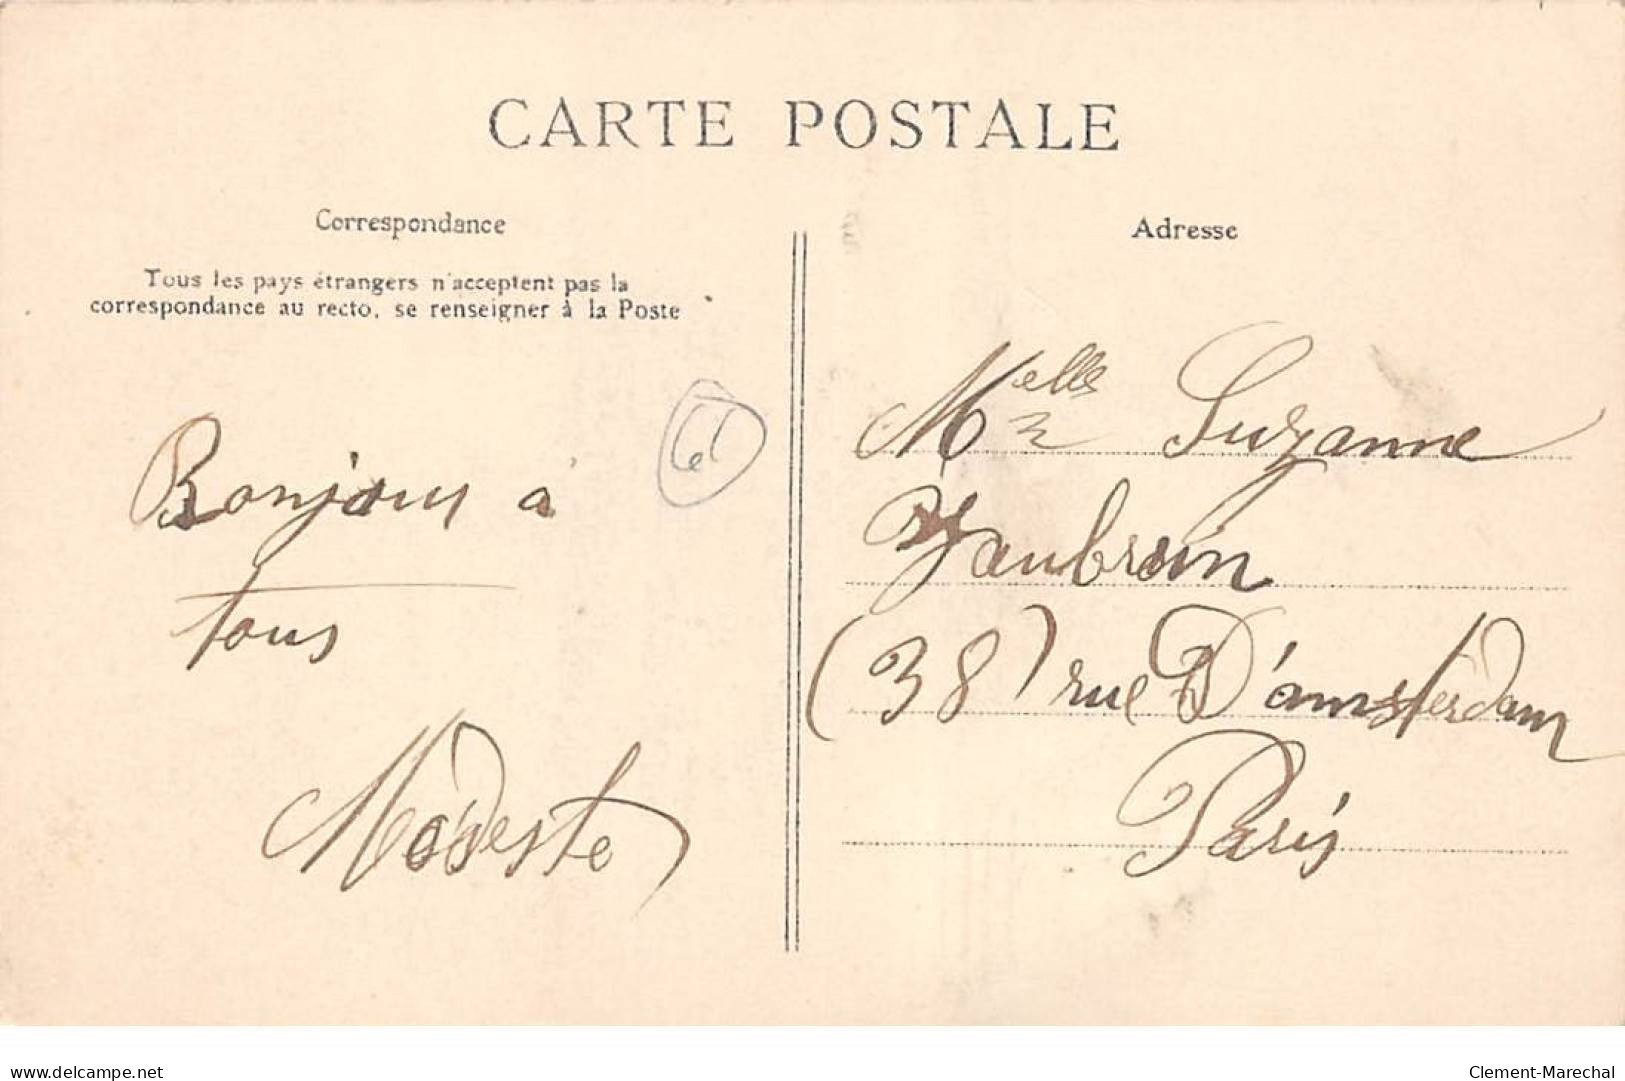 CARTE POSTALE
Correspondance
Tous les pays étrangers n'acceptent pas la
correspondance au recto, se renseigner à la Poste
Bonjour à
tous
Modeste
Adresse
Melle Suzanne
(38) rue D'amsterdam
Paris
delcampe.net
Clement-Marechal